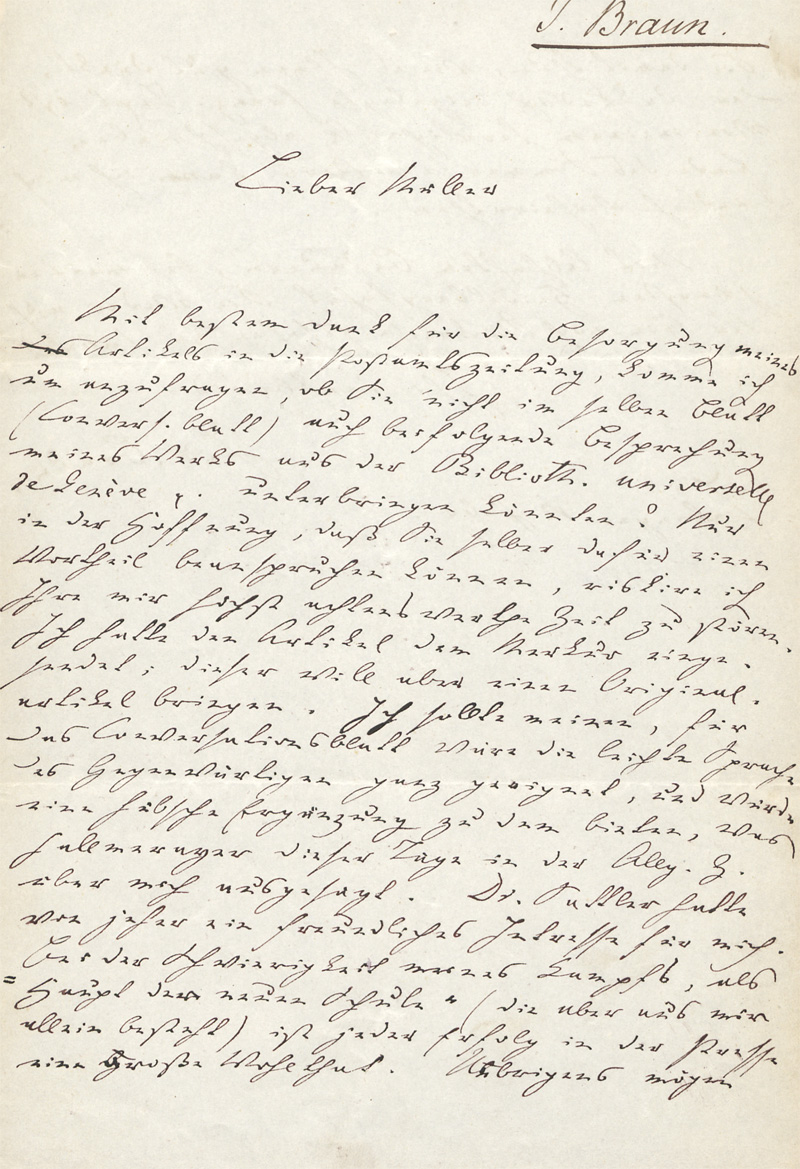 J. Braun.
Lieber Müller
Mit bestem Dank für die Besorgung meines
Artikels in die Postamtszeitung, komme ich
um anzufragen, ob Sie nicht im selben Blatt
(Convers. blatt) auch beifolgende Besprechung
meines Werks aus der Biblioth. universelle
de Genève unterbringen könnten? Nur
in der Hoffnung, daß Sie selber dafür einen
Vortheil beanspruchen können, riskire ich
Ihre mir höchst achtenswerthe Zeit zu stören.
Ich hatte den Artikel dem Merkur einge-
sendet; dieser will aber einen Original-
artikel bringen. Ich sollte meinen, für
das Conversationsblatt wäre die leichte Sprache
des Gegenwärtigen ganz geeignet, und würde
eine hübsche Ergänzung zu dem bieten, was
Fallmerayer dieser Tage in der Allg. Z.
über mich ausgesagt. Dr. Sattler hatte
von jeher ein freundliches Intresse für mich.
Bei der Schwierigkeit meines Kampfs, als
"Haupt der neuen Schule" (die aber aus mir
allein besteht) ist jeder Erfolg in der Presse
eine große Wohlthat. Uebrigens mögen